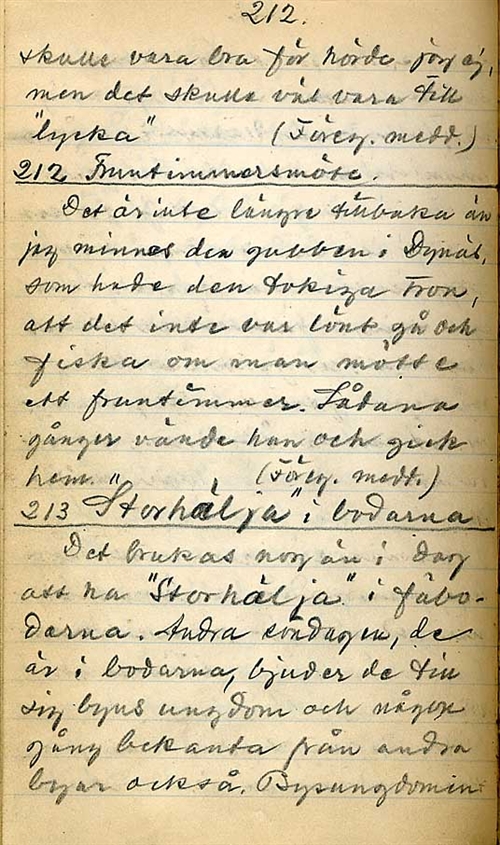 212.
skulle vara bra för hörde jag ej,
men det skulle väl vara till
"lycka" (Föreg. medd.)
212 Fruntimmersmöte.
Det är inte längre tillbaka än
jag minnes den gubben i Dynäs,
som hade den tokiga tron,
att det inte var lönt gå och
fiska om man mötte
ett fruntimmer. Sådana
gånger vände han och gick
hem." (Föreg. medd.)
213 "Storhälja" i bodarna
Det brukas nog än i dag
att ha "Storhälja" i fäbo-
darna. Andra söndagen, de
är i bodarna, bjuder de till
sig byns ungdom och någon
gång bekanta från andra
byar också. Bysungdomen